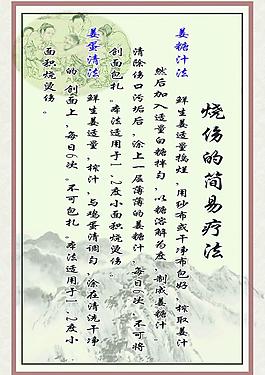 烧伤的简易疗法
姜糖汁法 鲜生姜适量捣烂,用砂布或干净布包好,榨取姜汁
然后加入适量白糖拌匀,以糖溶解为度,制成姜糖汁
清除伤口污垢后,涂上一层薄薄的姜糖汁,每日6次,不可将
创面包扎。本法适用于1、2度小面积烧烫伤。
姜蛋清法 鲜生姜适量,榨汁,与鸡蛋清调匀,涂在清洗干净
的创面上,每日6次。不可包扎。本法适用于1、2度小
面积烧烫伤。